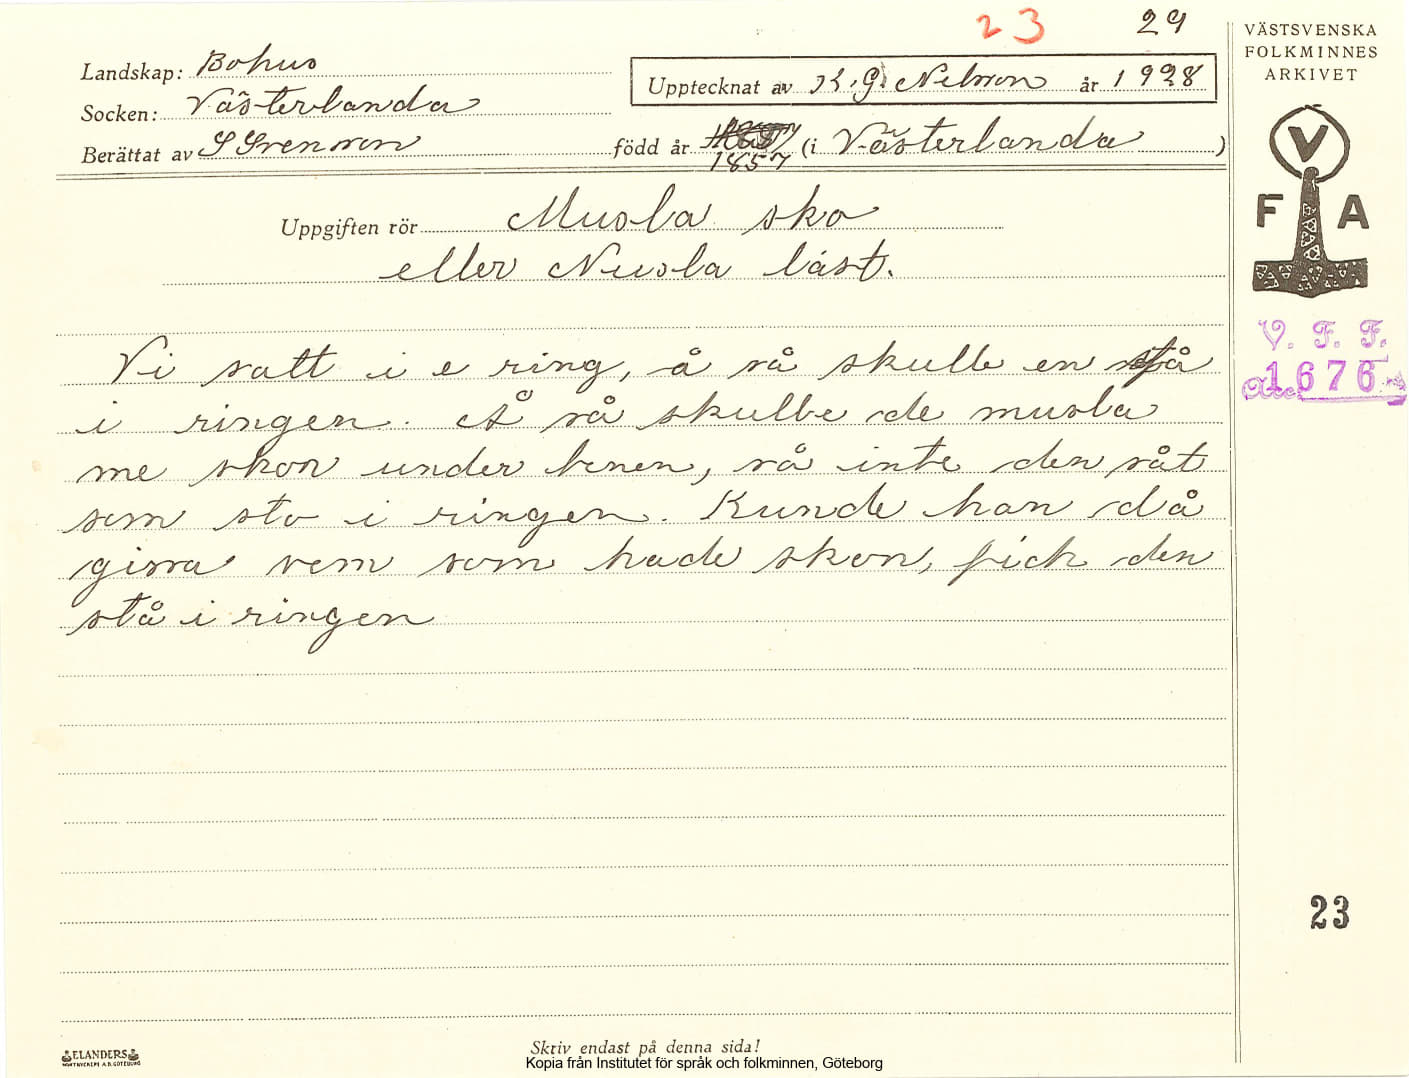 23 29
VÄSTSVENSKA
FOLKMINNES
ARKIVET
Landskap: Bohus
Upptecknat av K. G. Nilsson år 1928
Socken: Västerlanda
Berättat av S Svensson född år 1857 (i Västerlanda)
Uppgiften rör Musla sko
eller Nusla låst.
Vi satt i e ring, å så skulle en stå
i ringen. Å så skulle de musla
me skon under benen, så inte den såt
som sto i ringen. Kunde han då
gissa vem som hade skon, fick den
stå i ringen
V
F A
V. F. F.
Acc. 1676
23
ELANDERS
Skriv endast på denna sida!
Kopia från Institutet för språk och folkminnen, Göteborg